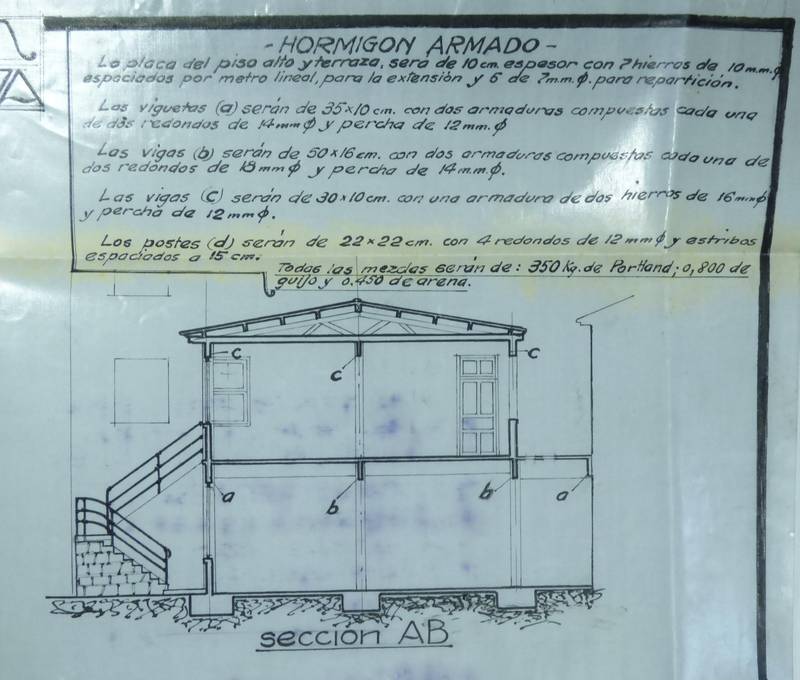 - HORMIGON ARMADO -
La placa del piso alto y terraza, será de 10 cm. espesor con 7 hierros de 10 m.m. φ
espaciados por metro lineal, para la extensión y 6 de 7 m.m. φ. para repartición.
Las viguetas (a) serán de 35 x 10 cm. con dos armaduras compuestas cada una
de dos redondos de 14 mm φ y percha de 12 mm. φ
Las vigas (b) serán de 50 x 16 cm. con dos armaduras compuestas cada una de
dos redondos de mm φ y percha de 14 m.m. φ.
Las vigas (c) serán de 30 x 10 cm. con una armadura de dos hierros de 16 mm φ
y percha de 12 mm φ.
Los postes (d) serán de 22 x 22 cm. con 4 redondos de 12 mm φ y estribos
espaciados a 15 cm.
Todas las mezclas serán de: 350 Kg. de Portland; 0,800 de
guijo y 0.450 de arena.
c
c
c
a
b
b
a
sección AB